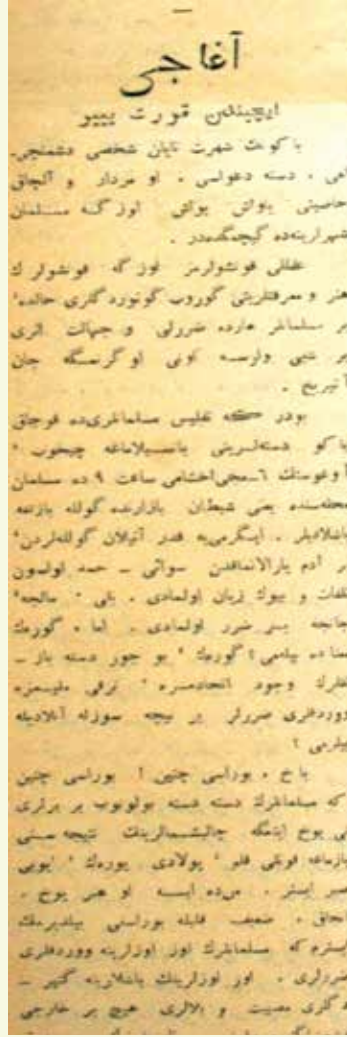 آغاجی
ایچیندن قورت ییبو
باکونك شهرت تاپان شخصی دشمنچی
لغی ، دسته دعواسی ، او مردار و آلچاق
خاصیتی یواش یواش اوزگه مسلمان
شهرلرینده گیچمگده‌در .
عقللی قونشولرمز اوزگه قونشولرك
هنر و معرفتلریتی گوروب گوتوردگلری حالده
بر مسلمانلر هارده ضررلی و جهالت اثری
بر شیی وارسه اونی اوگرنمگه جان
آتیریخ .
بودر که تفلیس مسلمانلری‌ده قوچاق
باکو دسته‌لرینی یامسیلاماغه چیخوب
آوغوستك ٦ـمجی اخشامی ساعت ٩ ده مسلمان
محله‌سنده یعنی شیطان بازارنده گولله بازلغه
باشلادیلر . ایگرمی‌یه قدر آتیلان گولله‌لردن
بر آدم یارالانماقدن سوائی ـ حمد اولسون
تلفات و بیوك زیان اولمادی . بلی
جه بر ضرر اولمادی . اما ، گورەك
معناده بیله‌می ؟ گورەك بو جور دسته باز ـ
لقلرك وجود اتحادمزه ترقی ملیمزه
ووردقلری ضررلر بر نیچه سوزله آنلادیله
بیلرمی ؟
باخ ، بوراسی چتین ! بوراسی چتین
که مسلمانلرك دسته دسته بولونوب بر برلری
نی یوخ ایتمگه چالیشمالرینك نتیجه سنی
یازماغه قوتلی قلم پولادی یورەك ایوبی
صبر ایستر . من‌ده ایسه او هنر یوخ .
آنجاق ، ضعیف قلمله بوراسنی بیلدیرمك
ایسترم که مسلمانلرك اوز اوزلرینه ووردقلری
ضررلری ، اوز اوزلرینك باشلارینه گتیر ـ
دگلری مصیبت و بلالری هیچ بر خارجی